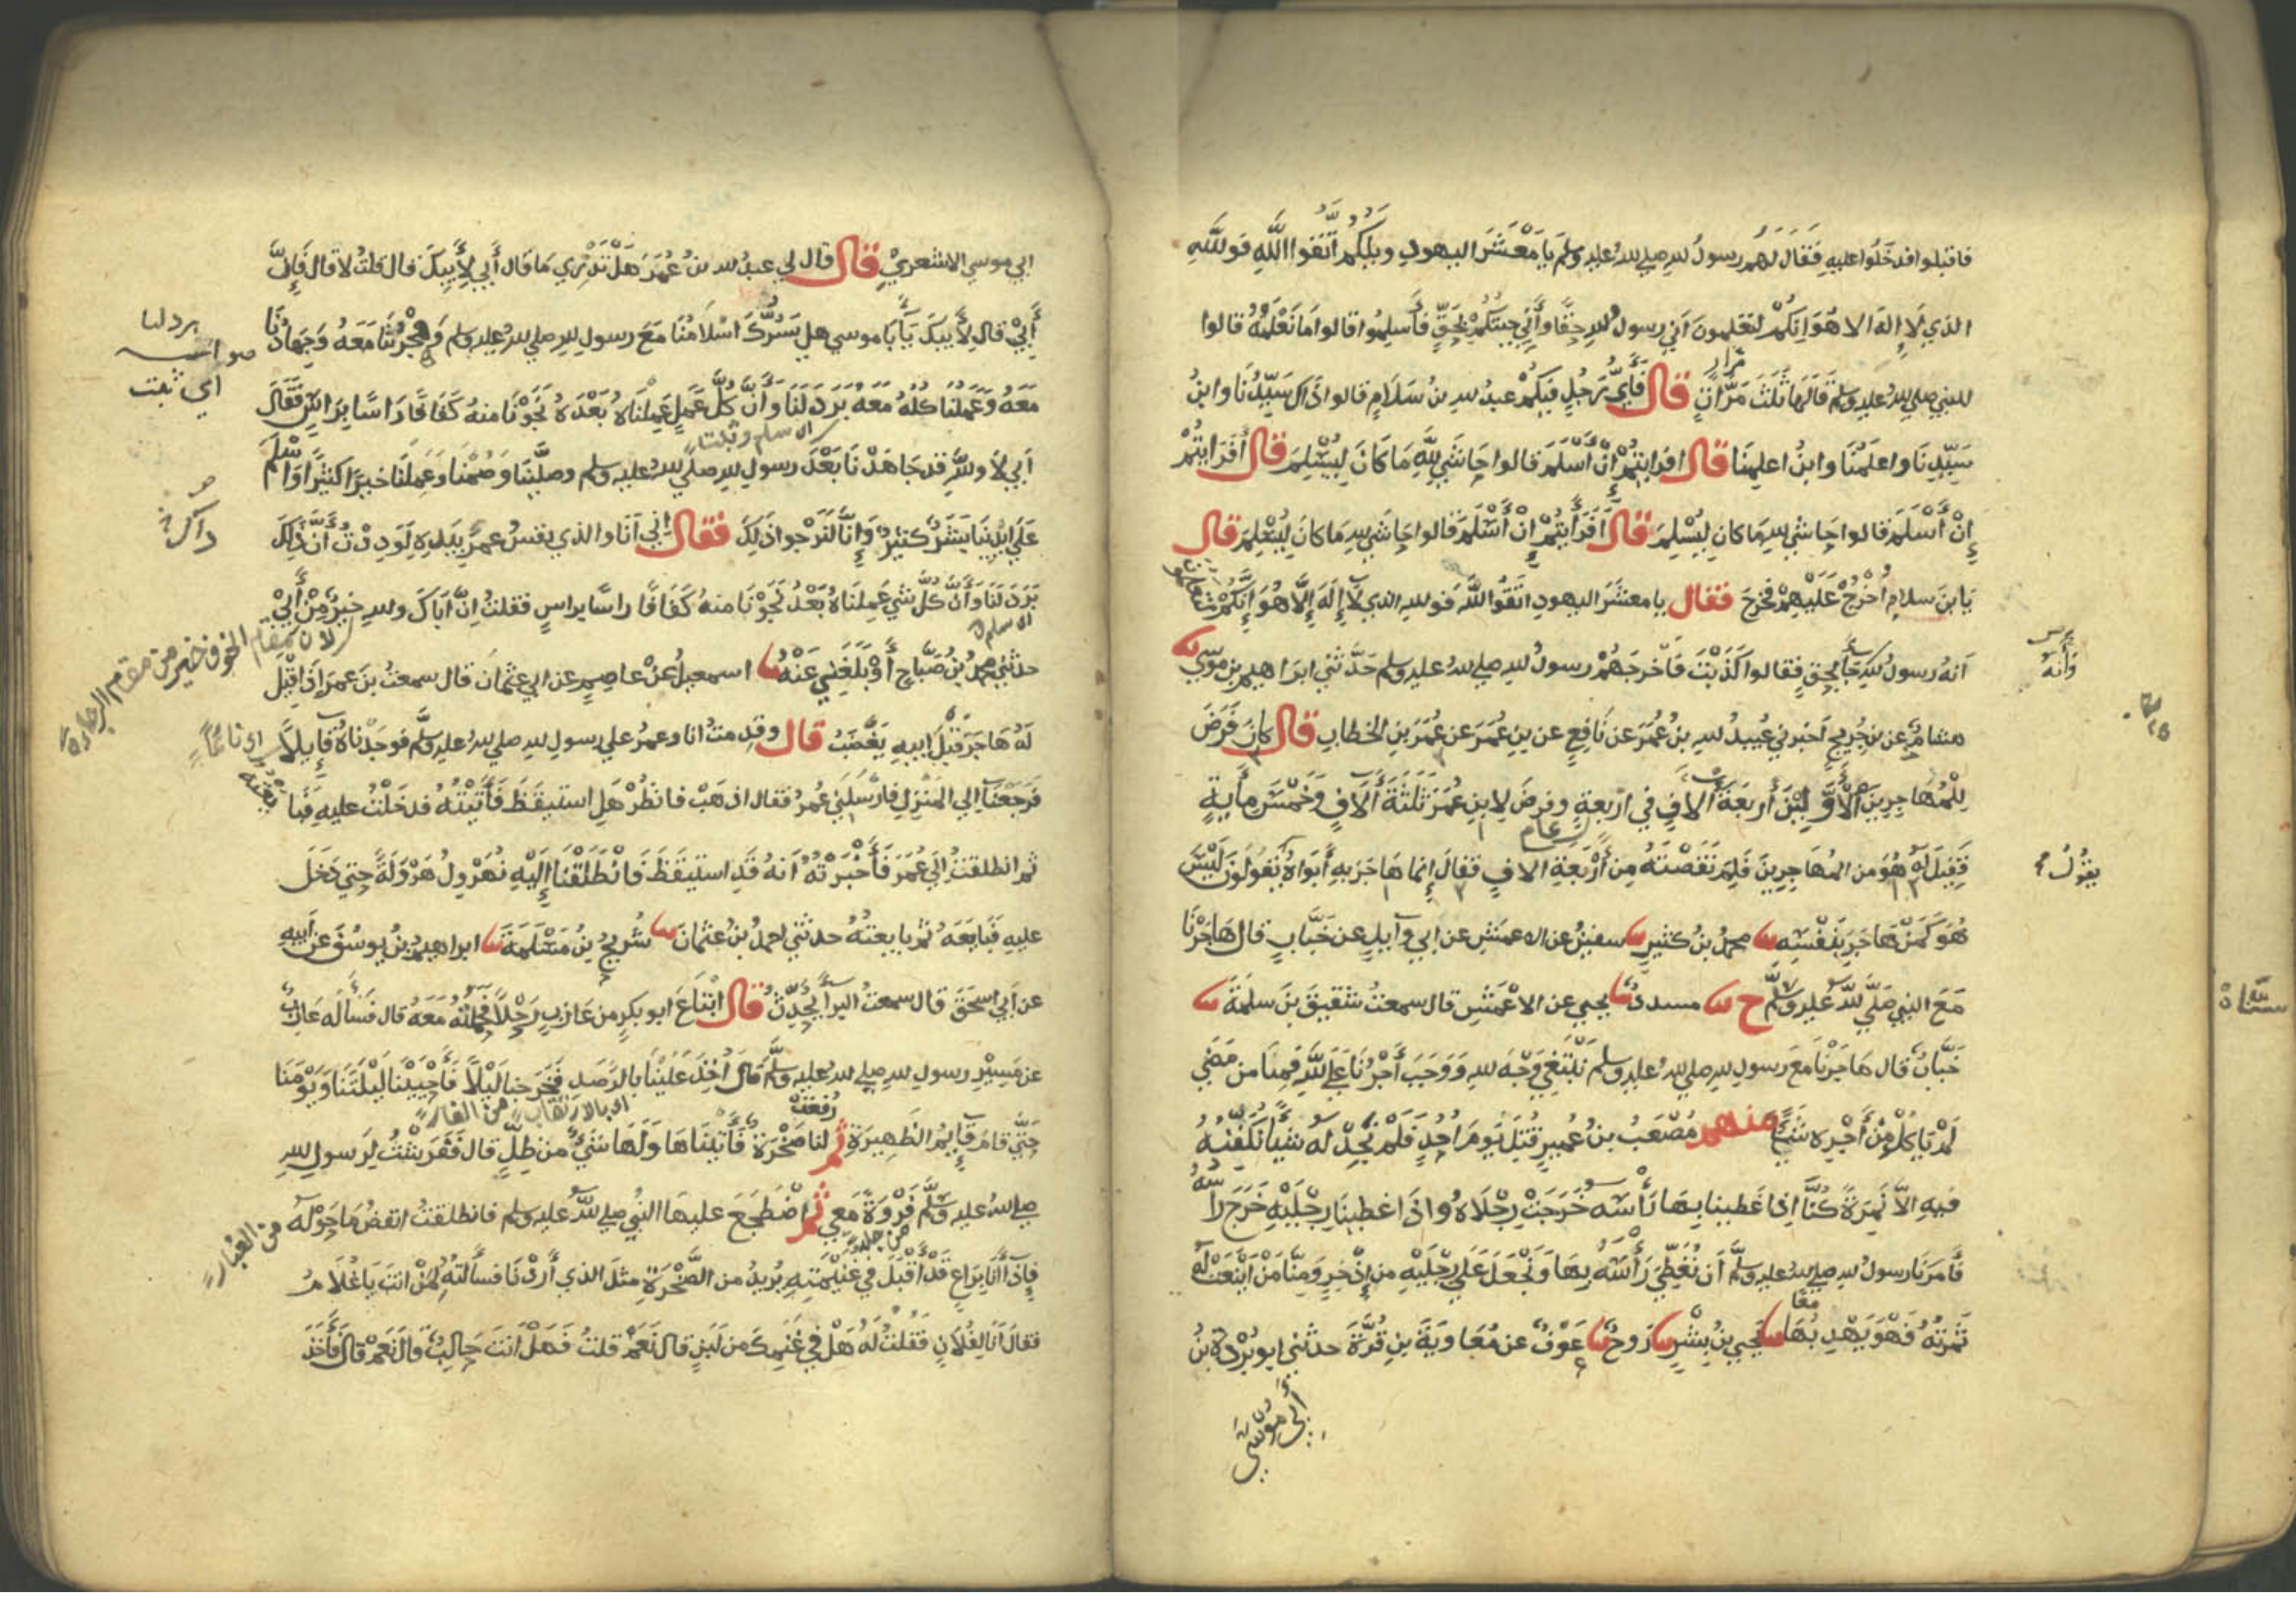 فاقبلوا فدخلوا عليه فَقَالَ لَهُم رسولُ لله صلي لله عليه وسلم يا مَعْشَرَ اليهودِ ويلكُم اتَّقوا اللَّهَ فوللَّهِ
الذي لا إله الا هُوَ انكُمْ لتعلمونَ اني رسولُ للهِ حقًّا وأَنِّي جيتُكُمْ بحَقٍّ فأسلِموا قالوا ما نَعْلَمُهُ قالوا
للنبي صلي لله عليه وسلم قَالَهَا ثَلَثَ مَرَّاتٍ قال فَأَيُّ رَجُلٍ فيكُمْ عبدُ لله بنُ سَلَامٍ قالوا ذاك سَيِّدُنَا وابنُ
مرار
سَيِّدِنَا واعلَمُنَا وابنُ اعلمِنَا قال افرايتُمْ إنْ أَسْلَمَ قالوا حَاشَي للَّهِ مَا كَانَ لِيُسْلِمَ قال أَفَرَايتُمْ
إِنْ أَسْلَمَ قالوا حَاشَي للهِ مَا كان لِيُسْلِمَ قال أَفَرَأَيتُمْ إِنْ أَسْلَمَ قالوا حَاشَي للهِ مَا كانَ لِيُسْلِمَ قال
يَا بنَ سلامٍ اخْرُجْ عَلَيْهِمْ فخرجَ فقال يا معشرَ اليهودِ اتقُوا اللَّه فوللهِ الذي لا إِلَهَ إِلَّا هُوَ إِنَّكُمْ لتعلمون
أنهُ رسولُ للهِ جَأَ بحقٍ فقالوا كَذَبْتَ فَأخرجَهُمْ رسولُ للهِ صلي لله عليه وسلم حَدَّثني ابراهيم بن موسي
وَأنهُ
هشامٌ عن بنِ جُريجٍ اخبرني عُبيدُ للهِ بنُ عُمَرَ عن نَافِعٍ عن بنِ عُمَرَ عن عُمَرَ بنِ الخطابِ قال كانَ فَرَضَ
لِلْمُهَاجِرِينَ الأَوَّلِينَ أَربَعَةَ آلافٍ في اربعةٍ وفرضَ لابنِ عُمَرَ ثَلَثَةَ آلَافٍ وَخَمْسَ مِأَيةٍ
فَقِيلَ لَهُ هُوَ من المُهَاجِرِينَ فَلِمَ نَقَصْتَهُ مِن أَرْبَعَةِ الافٍ فقالَ إِنما هَاجَرَ بِهِ أَبَوَاهُ يَقُولُونَ لَيْسَ
يقولُ
هُوَ كَمَنْ هَاجَرَ بِنَفْسِهِ محمدُ بنُ كثيرٍ سفينُ عن الاعمَشِ عن ابي وآيلٍ عن خَبَّابٍ قال هَاجَرْنَا
مَعَ النبي صَلَّي للَّه عليه وسلَّم ح مسددٌ يحيي عن الاعْمَشِ قال سمعتُ شقيقَ بنَ سلمَةَ
خَبَّابٌ قال هَاجَرْنَا مَعَ رسولِ للهِ صلي لله عليه وسلم نَبْتَغِي وَجْهَ للهِ وَوَجَبَ أَجْرُنَا عَلَي للَّهِ فَمِنَّا من مَضَي
لَمْ يَاكُلْ مِنْ أَجْرِه شَيْئًا منهم مُصْعَبُ بنُ عُميرٍ قُتِلَ يَومَ احُدٍ فَلَمْ نَجِدْ لهُ شيأً نُكَفِّنُهُ
فيهِ الَّا نَمِرَةً كُنَّا اذا غَطينا بهَا رَأْسَه خَرَجَتْ رِجْلَاهُ واذَا غطينَا رِجْلَيْهِ خَرَجَ رأسُهُ
فَأمَرَنَا رسولُ للهِ صلي لله عليه وسلَّم أن نُغَطِّيَ رَأْسَهُ بِهَا وَنَجْعَلَ عَلَي رِجْلَيْهِ من إذْخِرٍ وَمِنَّا مَنْ أيْنَعَتْ لَهُ
ثَمرتُهُ فَهْوَ يَهْدِبُهَا يحيي بنُ بِشْرٍ رَوحٌ عَوْفٌ عن مُعَاويَةَ بنِ قُرَّةَ حدثني ابو بُرْدةَ بنُ
معًا
أبي موسَي
ابي موسي الاشعريِّ قال قال لي عبدُ لله بنُ عُمَرَ هَلْ تَدْري مَا قال أَبي لِأَبِيكَ قال قلتُ لا قال فَإِنَّ
أَبي قال لِأَبِيكَ يَأَبَا موسي هل يَسُرُّكَ اسْلَامُنَا مَعَ رسولِ للهِ صلي لله عليه وسلم وَهِجْرَتُنَا مَعَهُ وَجِهَادُنَا
برد لنا
اي ثبت
مَعَهُ وَعَمَلُنَا كُلُّهُ مَعَهُ بَرَدَ لَنَا وَأَنَّ كُلَّ عَمَلٍ عَمِلْنَاهُ بَعْدَهُ نَجَوْنَا منهُ كَفَافًا رَاسًا بِرَاسٍ فَقَالَ
اَبي لا وللَّهِ قد جَاهَدْنَا بَعْدَ رسولِ للهِ صلي لله عليه وسلم وصلَّيْنَا وَصُمْنَا وَعَمِلْنَا خيرًا كثيرًا وَأسْلَمَ
عَلَي ايْدِينَا بَشَرٌ كثيرٌ وَإِنَّا لَنَرْجوا ذَلِكَ فقال ابي لَكني أنَا والذي نفسُ عمرَ بيَدِهِ لَوَدِدْتُ أَنَّ ذَلِكَ
بَرَدَ لَنَا وَأَنَّ كُلَّ شيٍ عَمِلنَاهُ بَعْدُ نَجَوْنَا منهُ كَفَافًا راسًا براسٍ فقلتُ إنَّ أبَاكَ وللهِ خيرٌ مِنْ أَبي
لان مقام الخوف خير من مقام الرجاء
حدثني محمدُ بنُ صَبَّاحٍ أَوْ بَلَغَنِي عَنْهُ اسمعيلُ عَنْ عاصمٍ عن ابي عثمانَ قال سمعتُ بنَ عمرَ إذا قيلَ
لَهُ هَاجَرَ قَبْلَ ابيهِ يَغْضَبُ قال وقدِمتُ انا وعمرُ علي رسولِ للهِ صلي لله عليه وسلَّم فوجَدْنَاهُ قَآيِلًا
اي نائمًا
فَرَجَعْنَا إلي المَنْزِلِ فارْسَلَني عُمرُ فقال اذهَبْ فانظُرْ هَلِ استيقَظَ فَأَتَيْتُهُ فدخلْتُ عليهِ فبايعته
ثم انطلقتُ الَي عُمَرَ فَأَخْبَرْتُهُ أنهُ قَدِ استيقَظَ فَانْطَلَقْنَا إِلَيْهِ نُهَرْوِلُ هَرْوَلَةً حتي دَخَلَ
عليهِ فَبَايَعَهُ ثم بايعتُهُ حدثني احمدُ بنُ عثمانَ شُريحُ بنُ مَسْلَمَةَ ابراهيمُ بنُ يوسُفَ عن أَبيهِ
عن أَبي اسحَقَ قال سمعتُ البرآَ يُحَدِّثُ قال ابْتَاعَ ابو بكرٍ من عَازِبٍ رَحْلًا فَحَمَلْتُهُ مَعَهُ قال فَسَأَلَه عَازِبٌ
عن مَسِيْرِ رسولِ للهِ صلي لله عليه وسلَّم قَالَ أُخِذَ عَلَيْنَا بالرَّصَدِ فَخَرَجنا لَيْلًا فَأَحْيَيْنَا لَيْلَتَنَا وَيَوْمَنَا
اي بالارتقاب من الغار
حَتَّي قامَ قَآيِمُ الظَّهِيرَةِ ثم رُفعَتْ لنا صَخْرَةٌ فَأَتَيْنَاهَا وَلَهَا شَيٌ من ظِلٍّ قال فَفَرَشْتُ لِرَسولِ للهِ
صلي لله عليه وسلَّم فَرْوَةً مَعِي ثم اضْطَجَعَ عليهَا النبي صلي للَّه عليه وسلم فانطلقتُ انفضُ مَا حَوْلَهُ
من الغُبار
من جلد
فَإذَا أنا بِرَاعٍ قَدْ أَقْبَلَ في غُنَيْمَتِهِ يُريدُ من الصَّخْرَةِ مثلَ الذي أَرَدْنَا فسأَلتُهُ لِمَنْ انتَ يَا غُلَامُ
فقالَ أنَا لِفُلَانٍ فَقُلْتُ لَهُ هَلْ فِي غَنَمِكَ من لَبَنٍ قال نَعَمْ قلتُ فَهَلْ انتَ حَالِبٌ قال نَعَمْ قال فَأَخَذَ